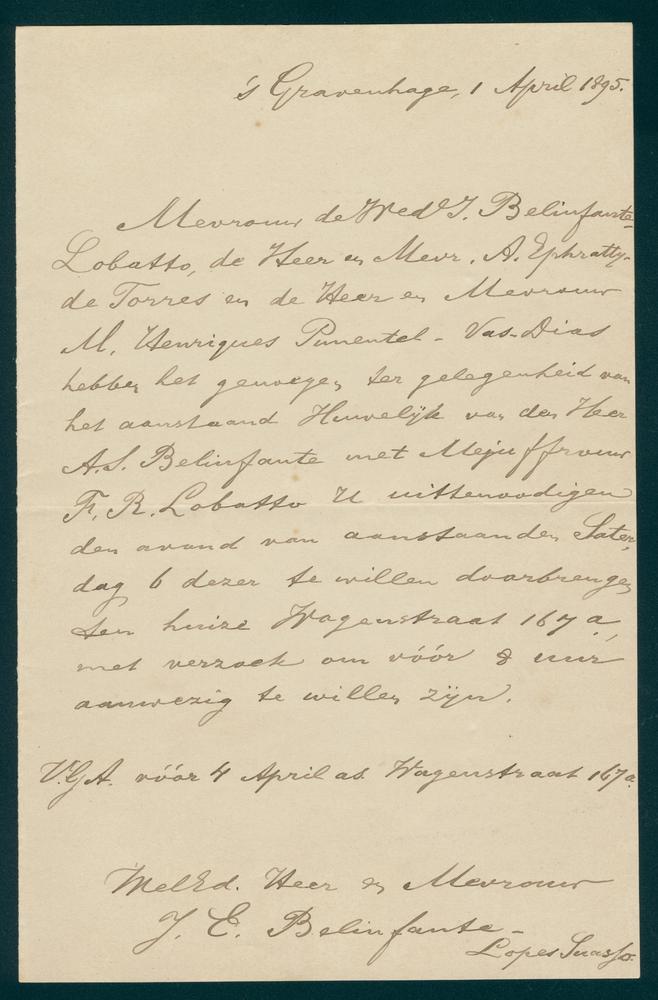 's Gravenhage, 1 April 1895.
Mevrouw de Wede J. Belinfante-
Lobatto, de Heer en Mevr. A. Ephratty-
de Torres en de Heer en Mevrouw
M. Henriques Pimentel - Vas-Dias
hebben het genoegen ter gelegenheid van
het aanstaand Huwelijk van den Heer
A.S. Belinfante met Mejuffrouw
F. R. Lobatto U uittenoodigen
den avond van aanstaanden Sater,
dag 6 dezer te willen doorbrengen
ten huize Wagenstraat 167a,
met verzoek om vóór 8 uur
aanwezig te willen zijn.
V.G.A. vóór 4 April at Wagenstraat 167a.
WelEd. Heer en Mevrouw
J. E. Belinfante -
Lopes Suasso.